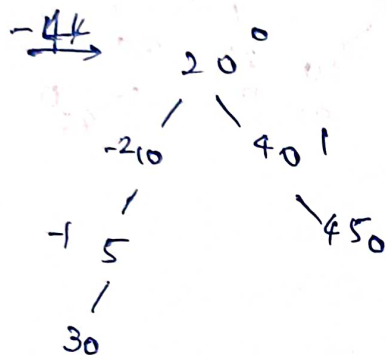 -44
20 0
-2 10 40 1
-1 5 45 0
30